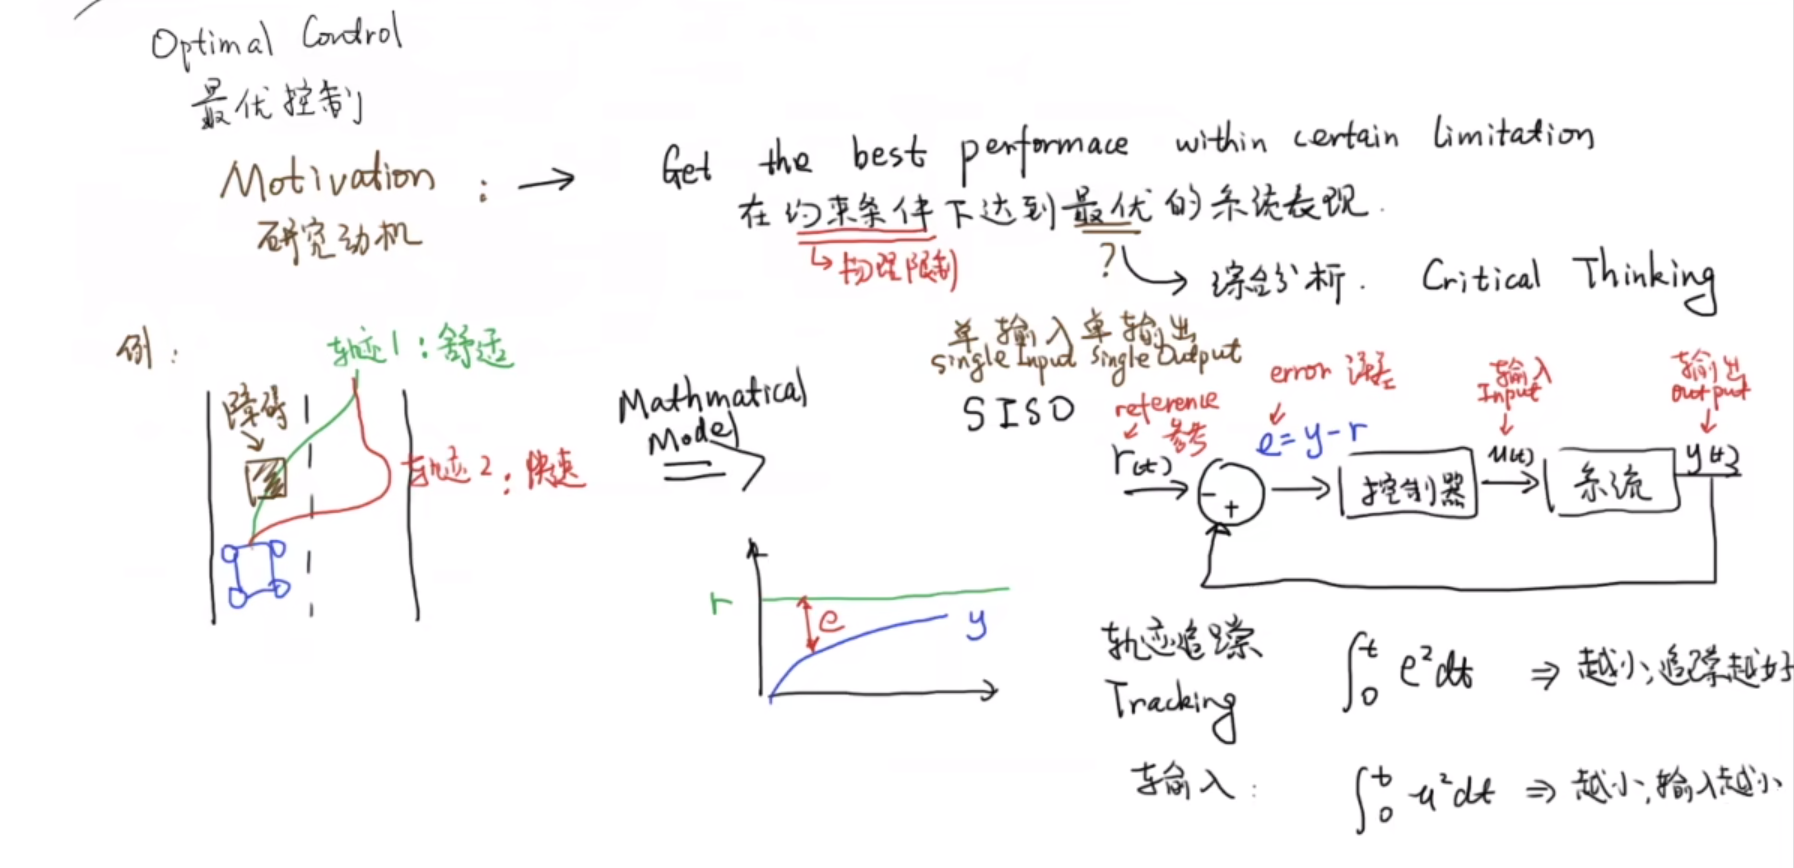 Optimal Control
最优控制
Motivation : →
研究动机
Get the best performace within certain limitation
在约束条件下达到最优的系统表现.
↳物理限制
?
→ 综合分析. Critical Thinking
例:
轨迹1:舒适
障碍
轨迹2:快速
Mathmatical
Model
单输入单输出
single Input single Output
SISO
reference
参考
error 误差
输入
Input
输出
output
r(t)
e=y-r
-
+
控制器
u(t)
系统
y(t)
r
e
y
轨迹追踪
Tracking
∫₀ᵗ e²dt ⇒ 越小,追踪越好
输入:
∫₀ᵗ u²dt ⇒ 越小,输入越小